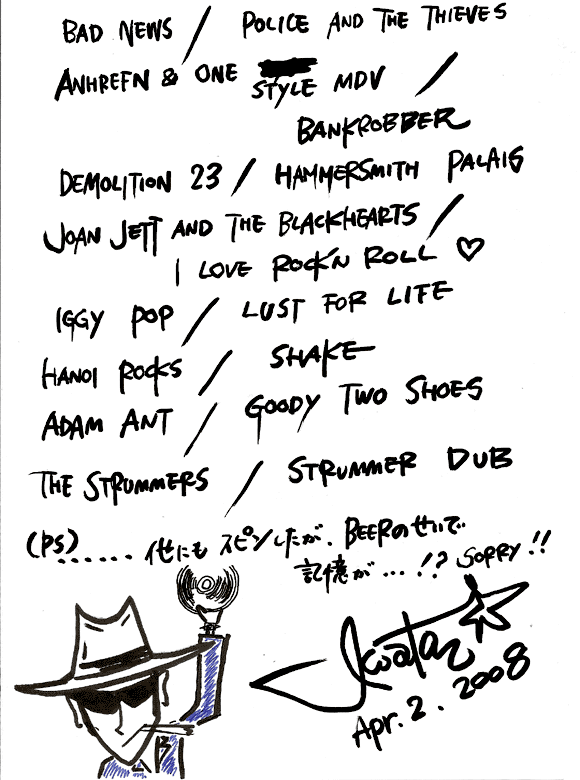 BAD NEWS / POLICE AND THE THIEVES
ANHREFN & ONE STYLE MDV /
BANKROBBER
DEMOLITION 23 / HAMMERSMITH PALAIS
JOAN JETT AND THE BLACKHEARTS /
I LOVE ROCK'N ROLL ♡
IGGY POP / LUST FOR LIFE
HANOI ROCKS / SHAKE
ADAM ANT / GOODY TWO SHOES
THE STRUMMERS / STRUMMER DUB
(PS)...... 他にも スピンしたが、BEERのせいで
記憶が...!? SORRY!!
Apr. 2. 2008